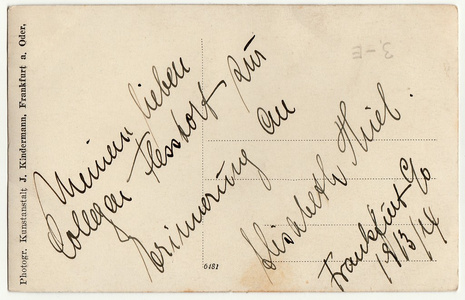 Photogr. Kunstanstalt J. Kindermann, Frankfurt a. Oder.
Meinem lieben
Collegen Hessdorf zur
Erinnerung an
Elisabeth Thiel.
Frankfurt a/o
19/3/14
6481
3.-E